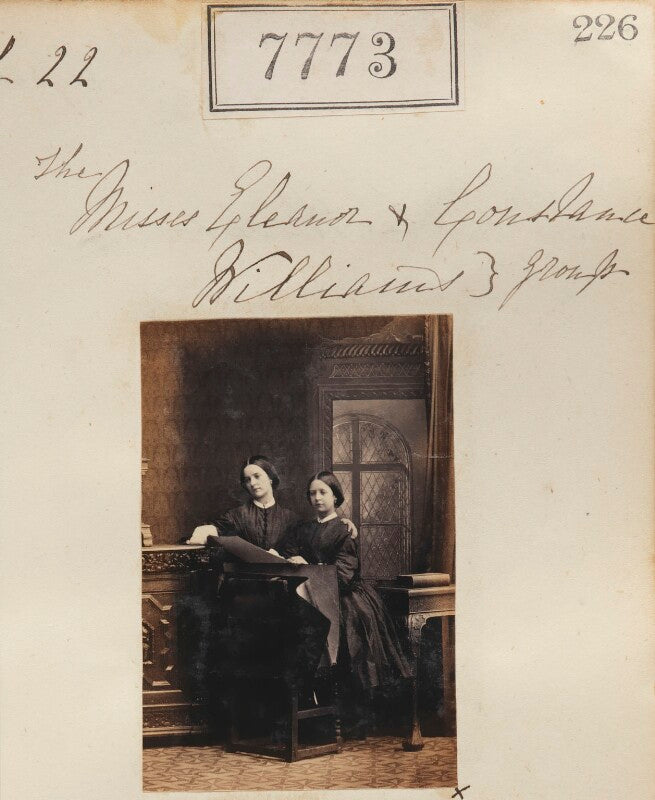 226
7773
22
The
Misses Eleanor & Constance
Williams } group
x